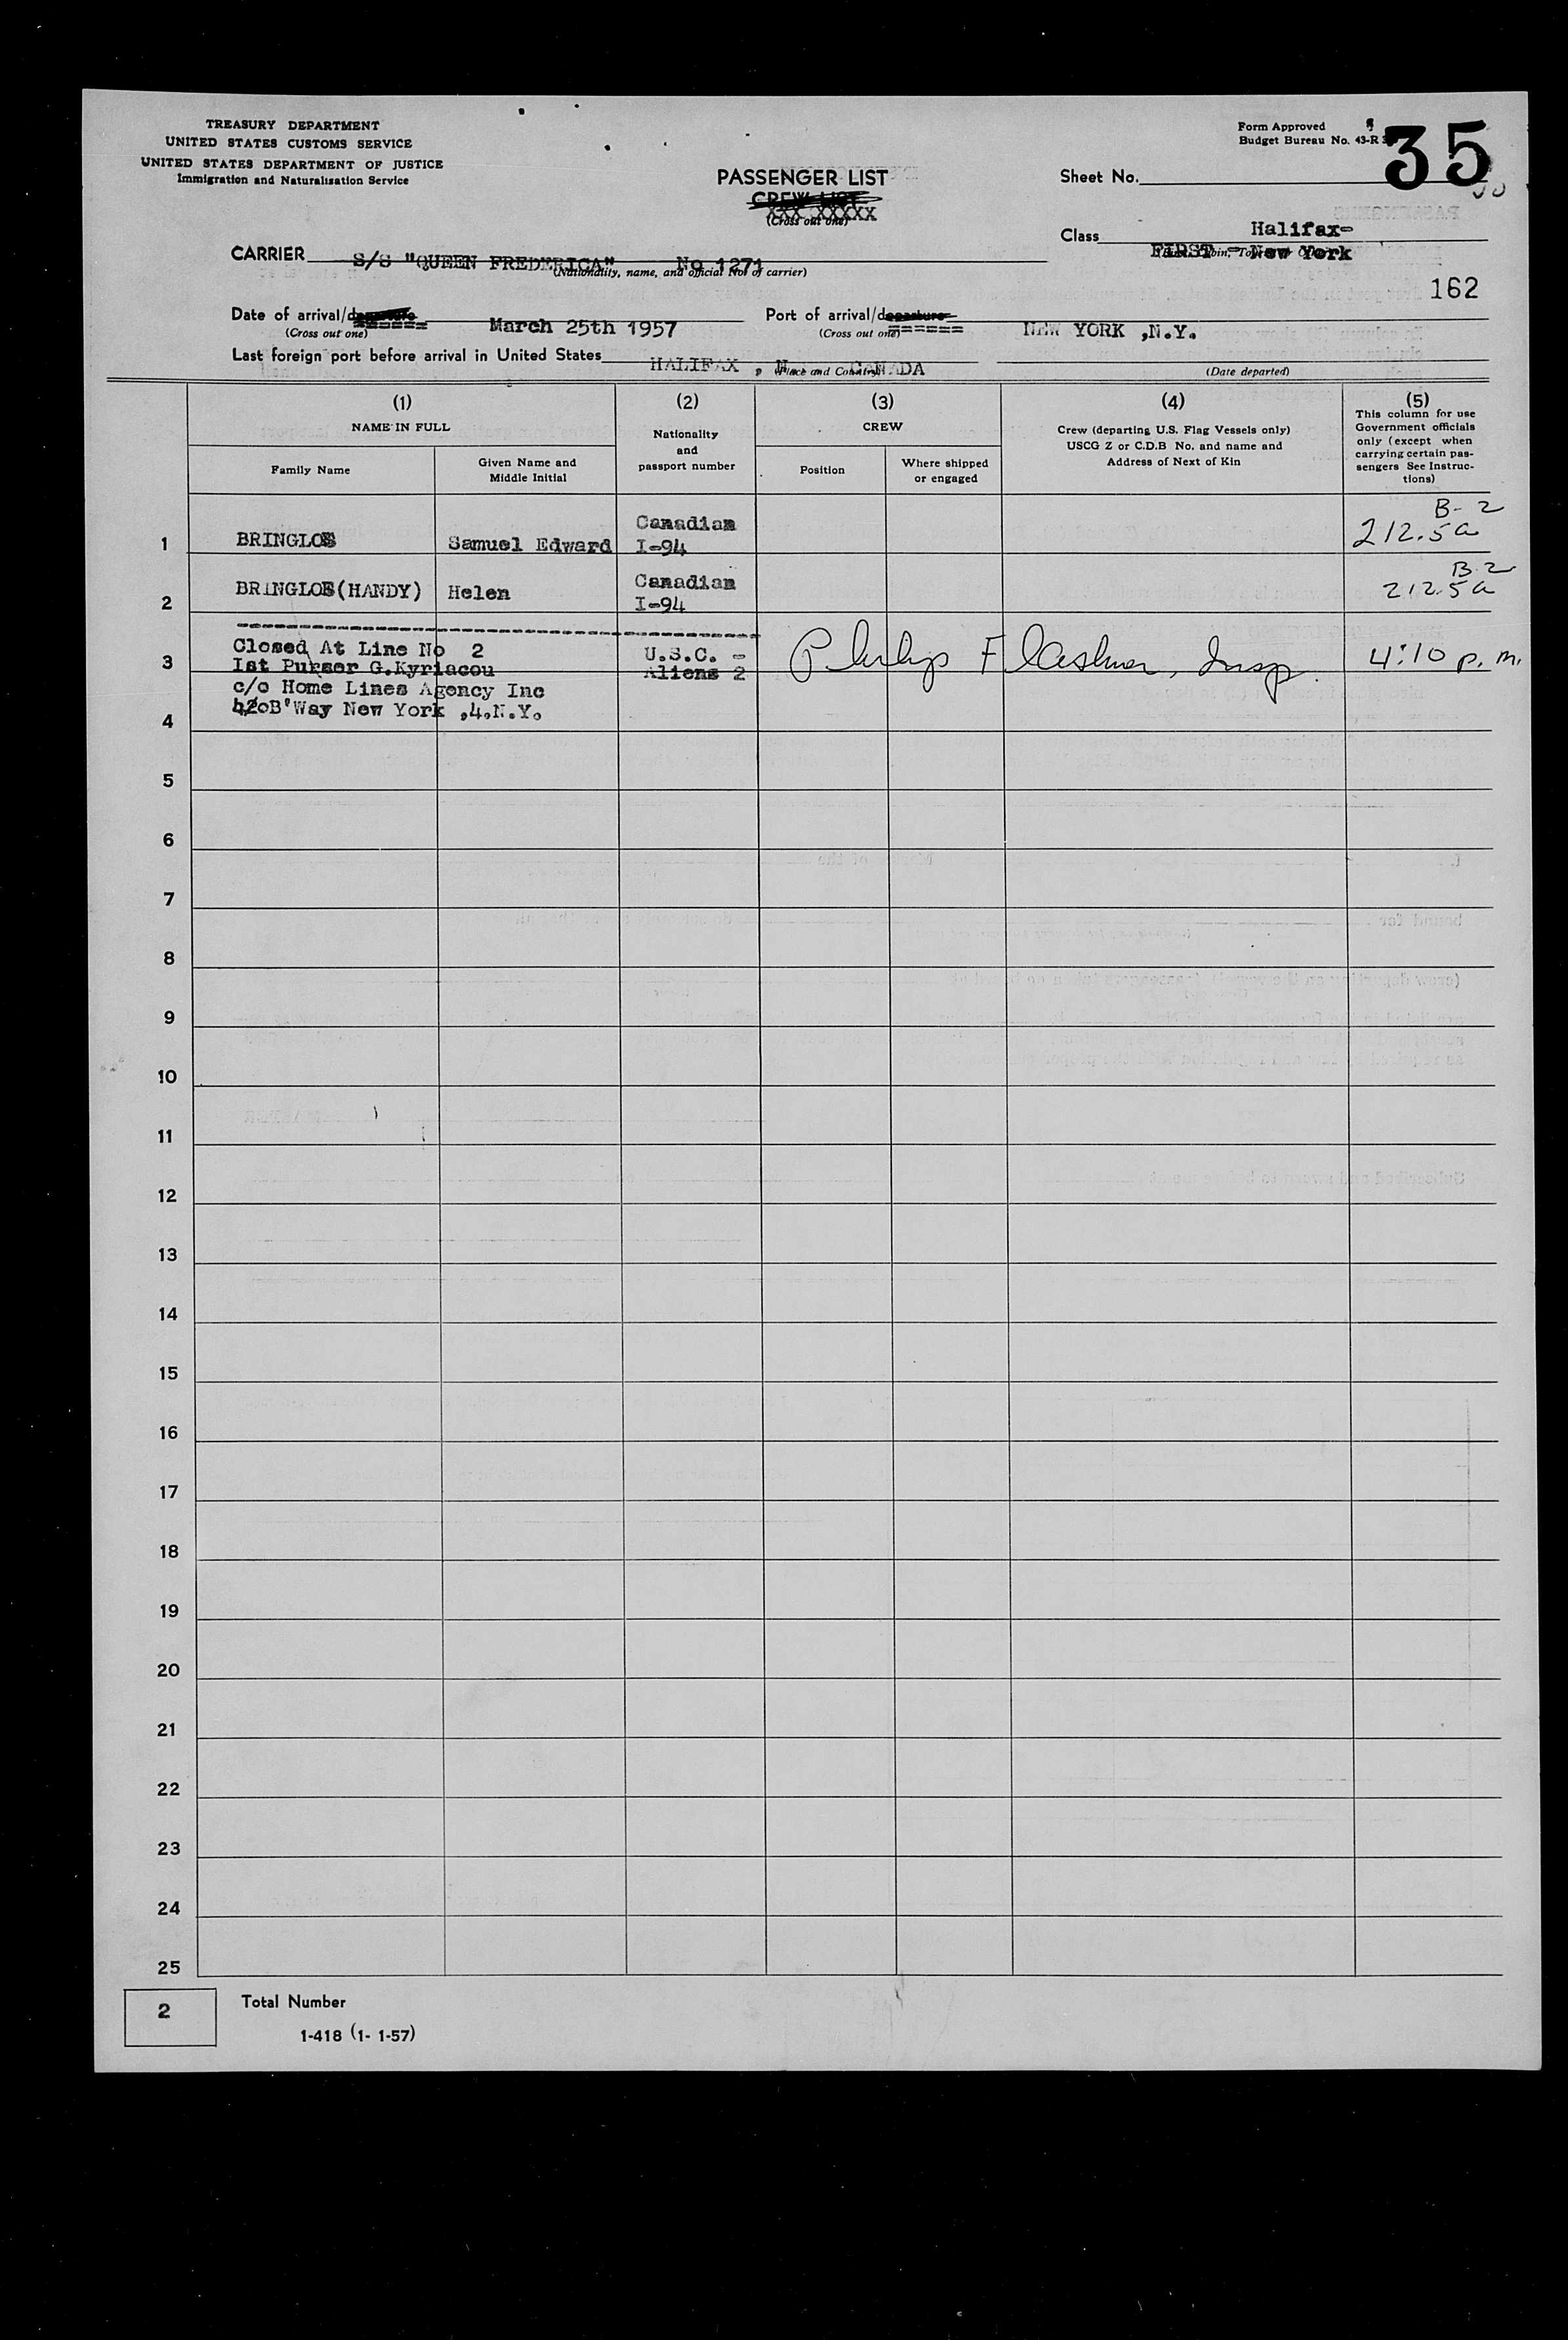 TREASURY DEPARTMENT
UNITED STATES CUSTOMS SERVICE
UNITED STATES DEPARTMENT OF JUSTICE
Immigration and Naturalization Service
Form Approved
Budget Bureau No. 43-R
35
PASSENGER LIST
CREW LIST
XXX XXXXX
(Cross out one)
Sheet No.
Class
Halifax-
FIRST - New York
162
CARRIER S/S "QUEEN FREDERICA" No 1271
(Nationality, name, and official No. of carrier)
Date of arrival/departure March 25th 1957
(Cross out one)
Port of arrival/departure NEW YORK ,N.Y.
(Cross out one)
Last foreign port before arrival in United States HALIFAX , CANADA
(Place and Country)
(Date departed)
(1)
NAME IN FULL
Family Name
Given Name and
Middle Initial
(2)
Nationality
and
passport number
(3)
CREW
Position
Where shipped
or engaged
(4)
Crew (departing U.S. Flag Vessels only)
USCG Z or C.D.B No. and name and
Address of Next of Kin
(5)
This column for use
Government officials
only (except when
carrying certain pas-
sengers See Instruc-
tions)
1 BRINGLOE Samuel Edward Canadian
I-94
B-2
212.5a
2 BRINGLOE(HANDY) Helen Canadian
I-94
B-2
212.5a
Closed At Line No 2 U.S.C. -
3 Ist Purser G.Kyriacou Aliens 2 Philip Flashner, Insp. 4:10 p.m.
c/o Home Lines Agency Inc
42oB'Way New York ,4.N.Y.
4
5
6
7
8
9
10
11
12
13
14
15
16
17
18
19
20
21
22
23
24
25
2 Total Number
1-418 (1- 1-57)